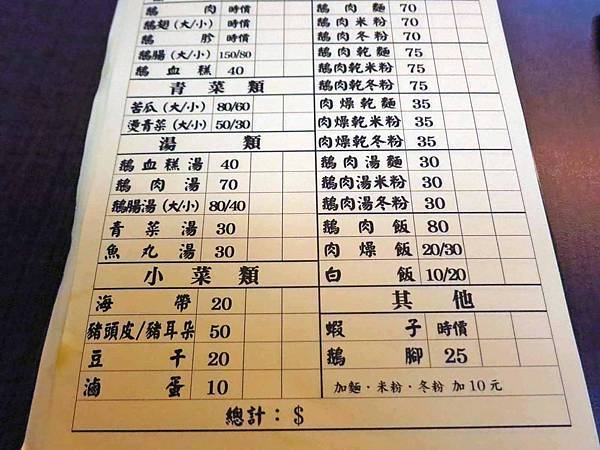 鵝 肉 時價
鵝翅(大/小) 時價
鵝 胗 時價
鵝腸(大/小) 150/80
鵝血糕 40
青菜類
苦瓜(大/小) 80/60
燙青菜(大/小) 50/30
湯類
鵝血糕湯 40
鵝肉湯 70
鵝腸湯(大/小) 80/40
青菜湯 30
魚丸湯 30
小菜類
海帶 20
豬頭皮/豬耳朵 50
豆干 20
滷蛋 10
鵝肉麵 70
鵝肉米粉 70
鵝肉冬粉 70
鵝肉乾麵 75
鵝肉乾米粉 75
鵝肉乾冬粉 75
肉燥乾麵 35
肉燥乾米粉 35
肉燥乾冬粉 35
鵝肉湯麵 30
鵝肉湯米粉 30
鵝肉湯冬粉 30
鵝肉飯 80
肉燥飯 20/30
白飯 10/20
其他
蝦子 時價
鵝腳 25
加麵·米粉·冬粉 加10元
總計：$